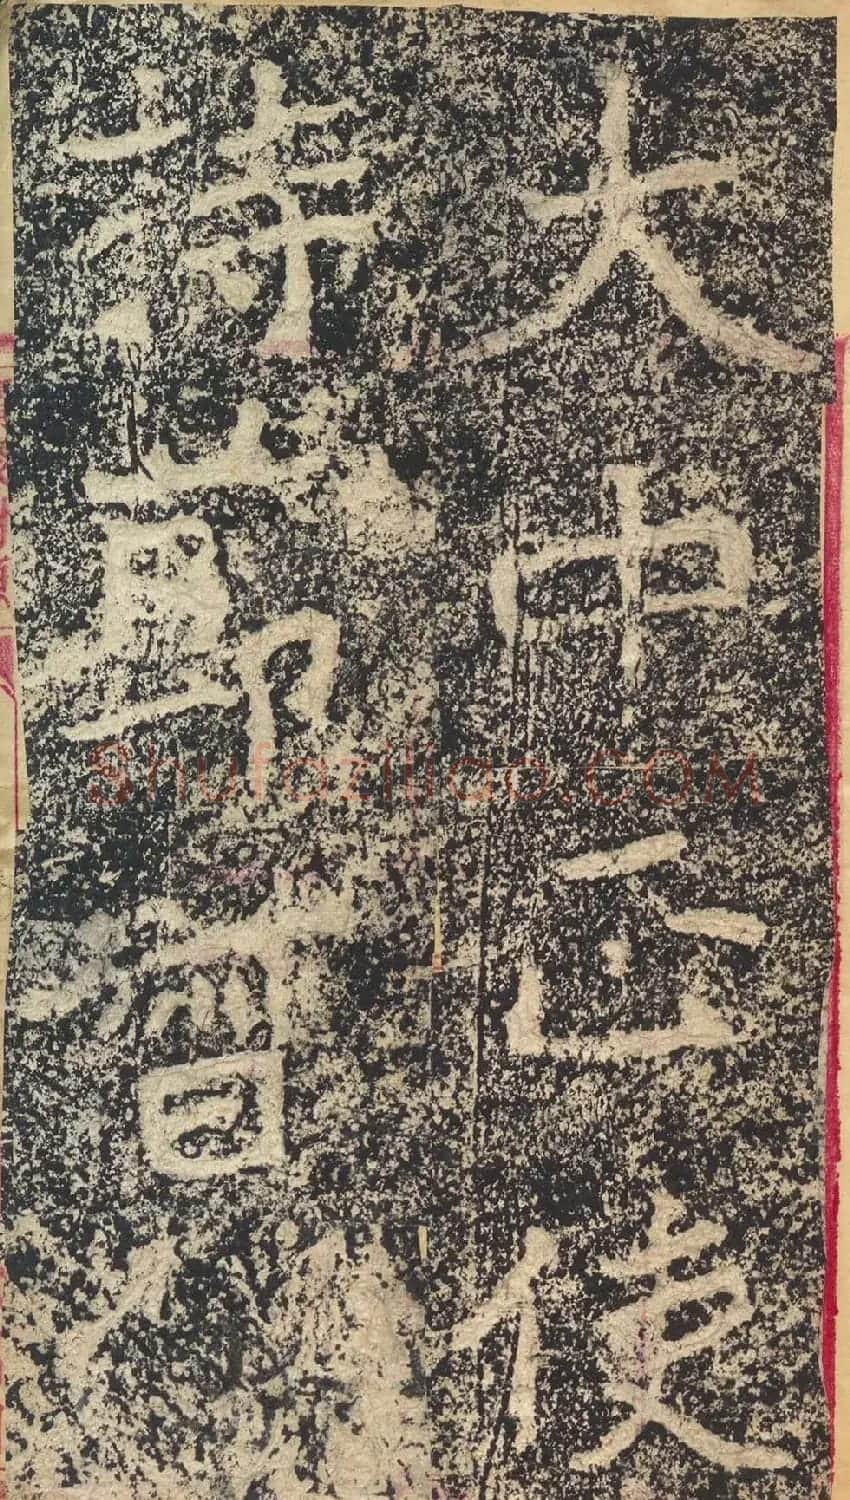 大中正使
持節督
Shufaziliao.COM